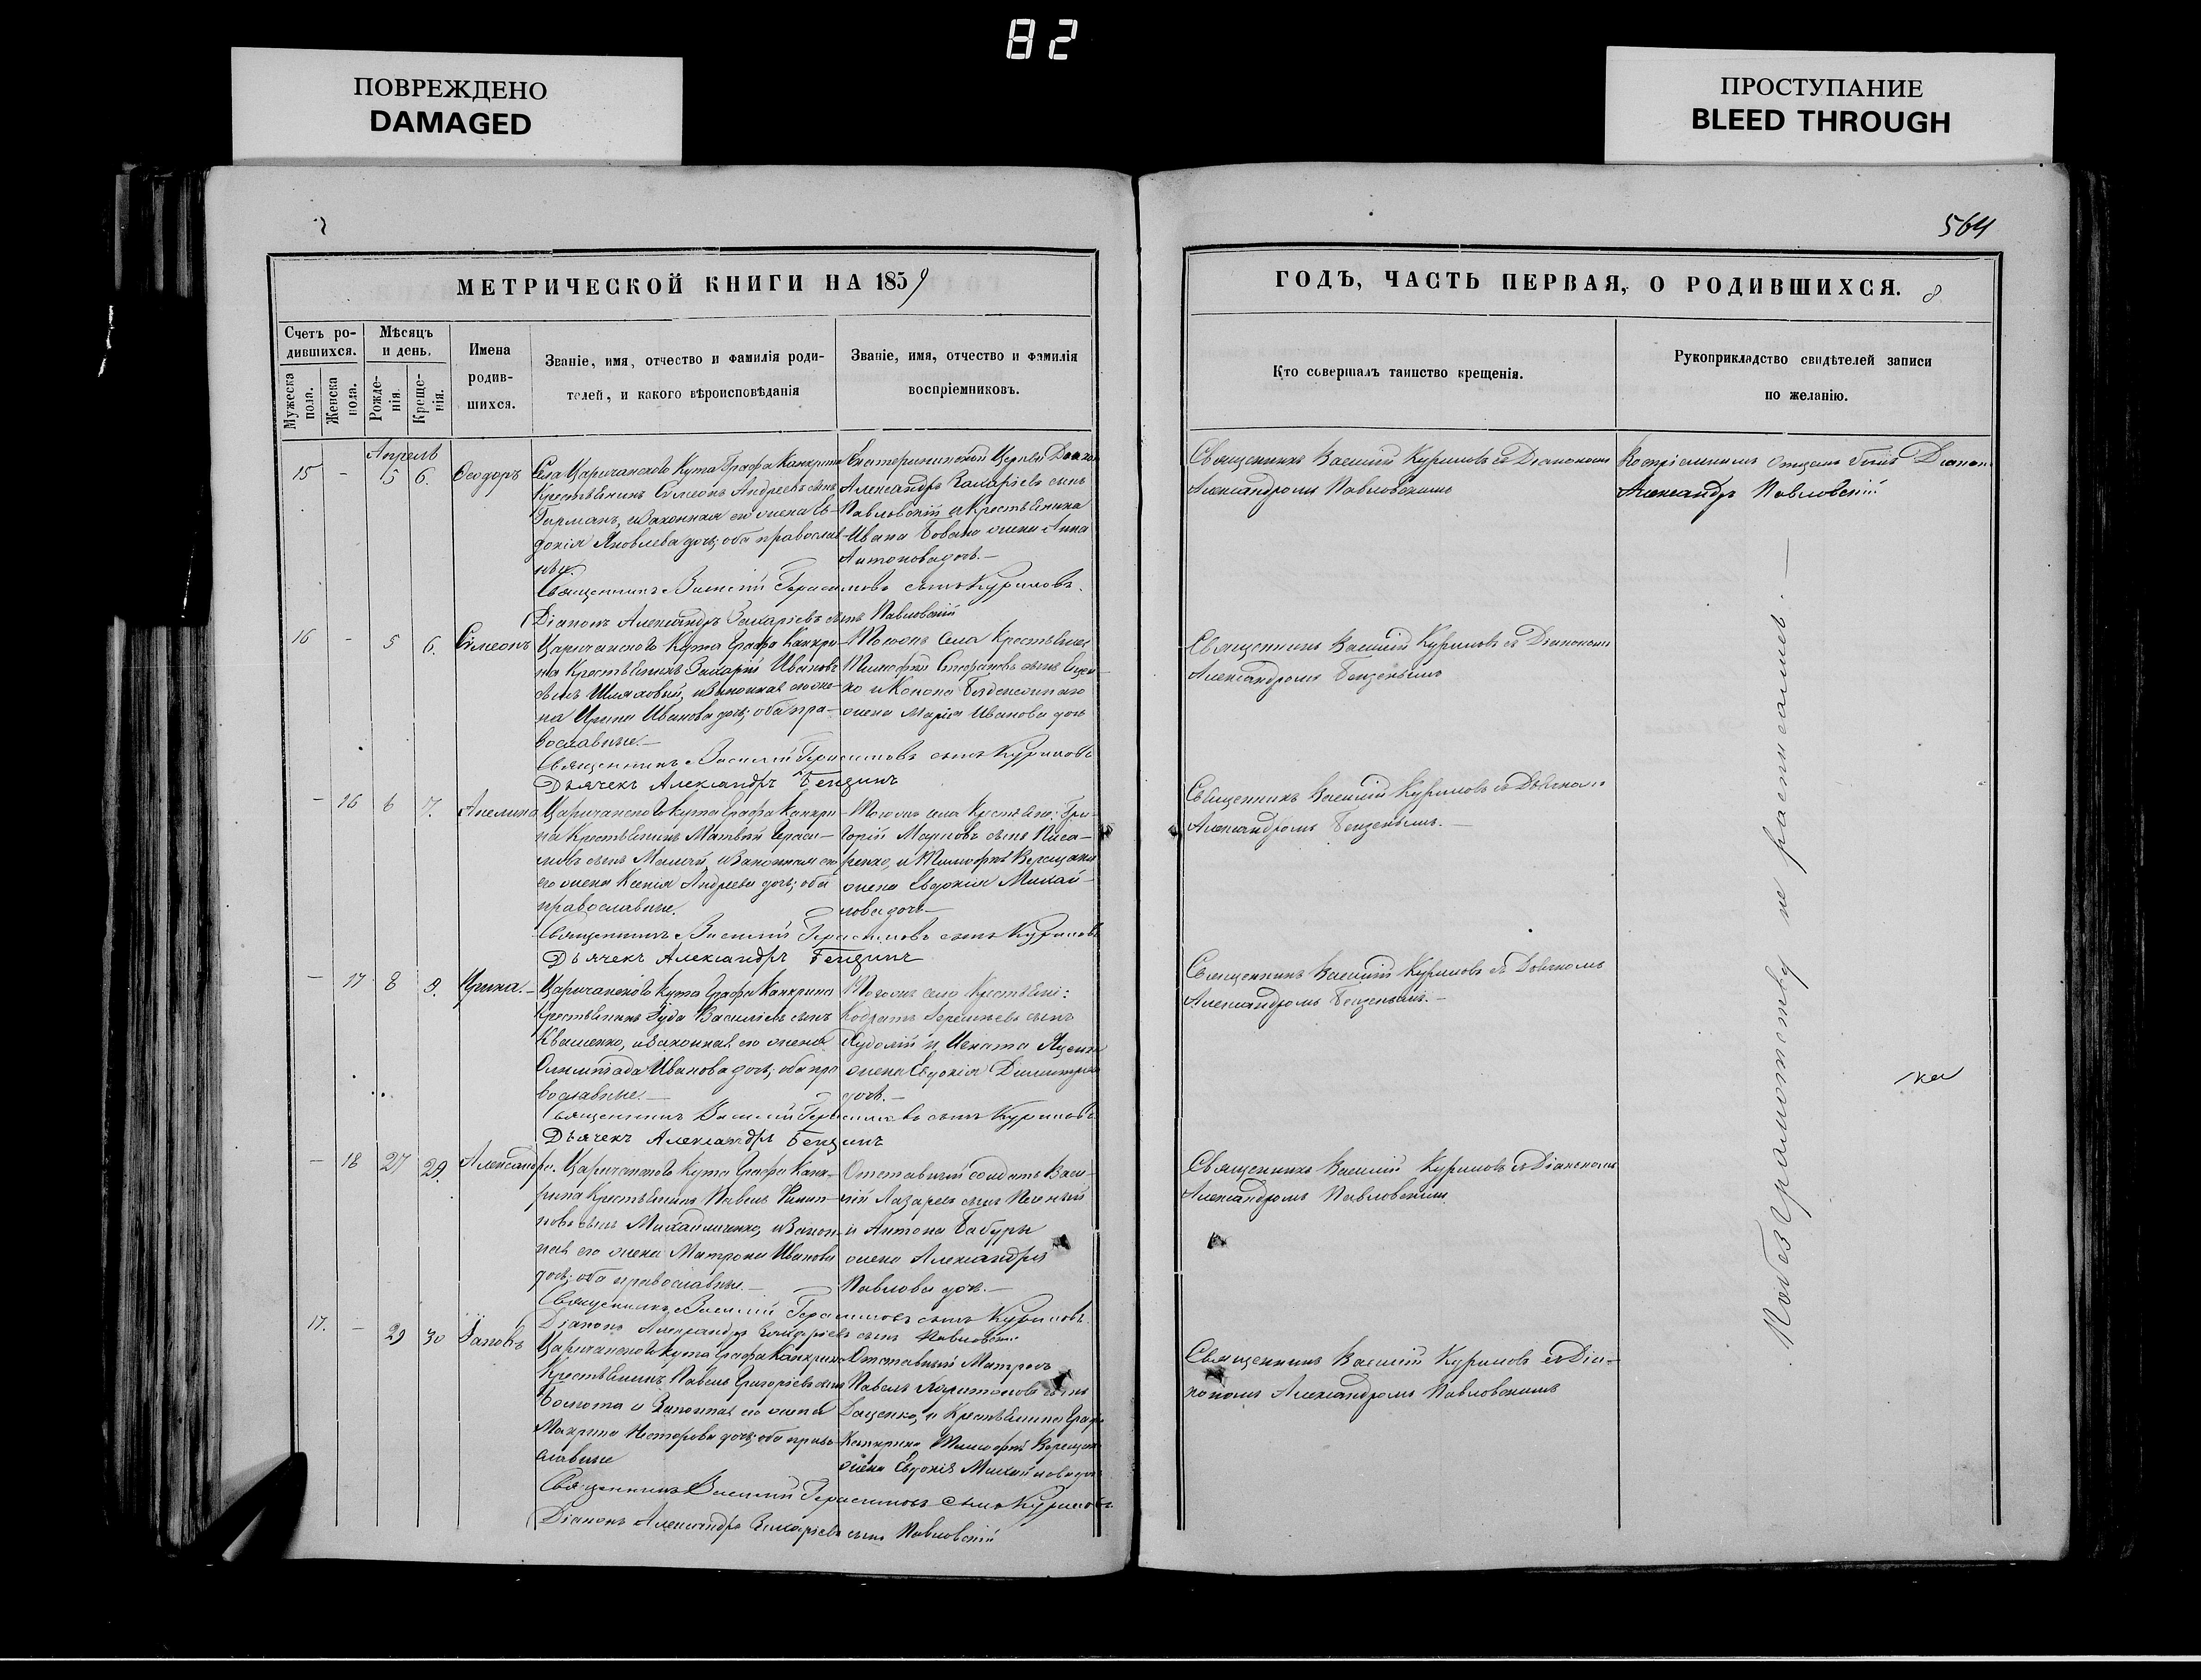 82
ПОВРЕЖДЕНО
DAMAGED
ПРОСТУПАНИЕ
BLEED THROUGH
564
МЕТРИЧЕСКОЙ КНИГИ НА 1859
ГОДЪ, ЧАСТЬ ПЕРВАЯ, О РОДИВШИХСЯ. 8
Счетъ ро-
дившихся.
Мужеска
пола.
Женска
пола.
Мѣсяцъ
и день.
Рожде-
нія.
Креще-
нія.
Имена
родив-
шихся.
Званіе, имя, отчество и фамилія роди-
телей, и какого вѣроисповѣданія
Званіе, имя, отчество и фамилія
воспріемниковъ.
Кто совершалъ таинство крещенія.
Рукоприкладство свидѣтелей записи
по желанію.
Апрель
15 - 5 6. Ѳеодоръ
Села Царичанскаго Кута Графа Канкрина
Крестьянинъ Симеонъ Андреевъ сынъ
законная его жена Ев-
докія Яковлева дочь; оба православ-
ны.
Екатерининской Церкви Діакон
Александръ Захаріевъ сынъ
Павловскій и Крестьянина
Ивана жена Анна
Антонова дочь.-
Священникъ Василій Герасимовъ сынъ Куриловъ.
Діаконъ Александръ Захаріевъ сынъ Павловскій
Священникъ Василій Куриловъ съ Діакономъ
Александромъ Павловскимъ
Воспріемникомъ былъ Діаконъ
Александръ Павловскій
16 - 5 6. Симеонъ
Царичанскаго Кута Графа Канкри-
на Крестьянинъ Захарій Ивановъ
сынъ и законная его же-
на Ирина Иванова дочь; оба пра-
вославные.-
Того же села Крестьяне
Тимофей Стефановъ сынъ
жена Марія Иванова дочь
Священникъ Василій Герасимовъ сынъ Куриловъ
Дьячекъ Александръ Бензинъ
Священникъ Василій Куриловъ съ Діакономъ
Александромъ
- 16 6 7. Акелина
Царичанскаго Кута Графа Канкри-
на Крестьянинъ Матвей Гераси-
мовъ сынъ и законная его
его жена Ксенія Андреева дочь; оба
православные.
Того же села Крестьяне: Гри-
горій Марковъ сынъ Писа-
ренко, и Тимофея
жена Евдокія Михай-
лова дочь-
Священникъ Василій Герасимовъ сынъ Куриловъ
Дьячекъ Александръ Бензинъ
Священникъ Василій Куриловъ съ Дьячкомъ
Александромъ
- 17 8 9. Ирина.-
Царичанскаго Кута Графа Канкрина
Крестьянинъ Василіевъ сынъ
Квашенко, и законная его жена
Олимпіада Иванова дочь; оба пра
вославные.-
Того же села Крестьяне:
сынъ
и Игната
жена Евдокія
дочь.-
Священникъ Василій Герасимовъ сынъ Куриловъ
Дьячекъ Александръ Бензинъ
Священникъ Василій Куриловъ съ Дьячкомъ
Александромъ
- 18 27 29. Александра.
Царичанскаго Кута Графа Канк-
рина Крестьянинъ Павелъ Филип-
повъ сынъ Михайличенко, и закон-
ная его жена Матрона Иванова
дочь; оба православные.-
Отставный солдатъ Васи-
лій Лазаревъ сынъ
и Антона Бабуры
жена Александра
Павлова дочь.-
Священникъ Василій Герасимовъ сынъ Куриловъ
Діаконъ Александръ Захаріевъ сынъ Павловскій
Священникъ Василій Куриловъ съ Діакономъ
Александромъ Павловскимъ
17. - 29 30 Іаковъ
Царичанскаго Кута Графа Канкрина
Крестьянинъ Павелъ Григоріевъ сынъ
и законная его жена
Макрина Несторова дочь; оба право-
славные
Отставный Матросъ
Павелъ Харитоновъ сынъ
и Крестьянина Графа
Канкрина Тимофея
жена Евдокія Михайлова дочь
Священникъ Василій Герасимовъ сынъ Куриловъ
Діаконъ Александръ Захаріевъ сынъ Павловскій
Священникъ Василій Куриловъ съ Діа-
кономъ Александромъ Павловскимъ
по безграмотству не росписались.-